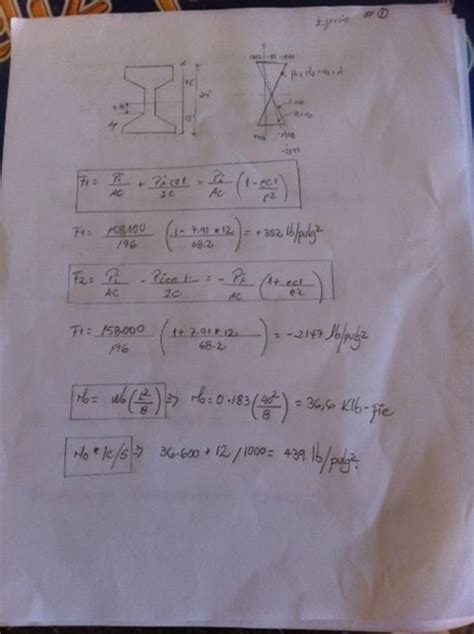 Ejercicio #①
24"
12"
F1 = Pi/AC + Pi e c1/IC = Pi/AC (1 - ec1/r2)
F1 = 158.000/196 (1 - 7.91 * 12/68.2) = +352 lb/pulg2
F2 = Pi/AC - Pi e c1/IC = - Pi/AC (1 + ec1/r2)
F1 = 158.000/196 (1 + 7.91 * 12/68.2) = -2147 lb/pulg2
Mo = Wo (L2/8) => Mo = 0.183 (40²/8) = 36,6 Klb-pie
Mo * 1c/S => 36.600 * 12 / 1000 = 439 lb/pulg2.